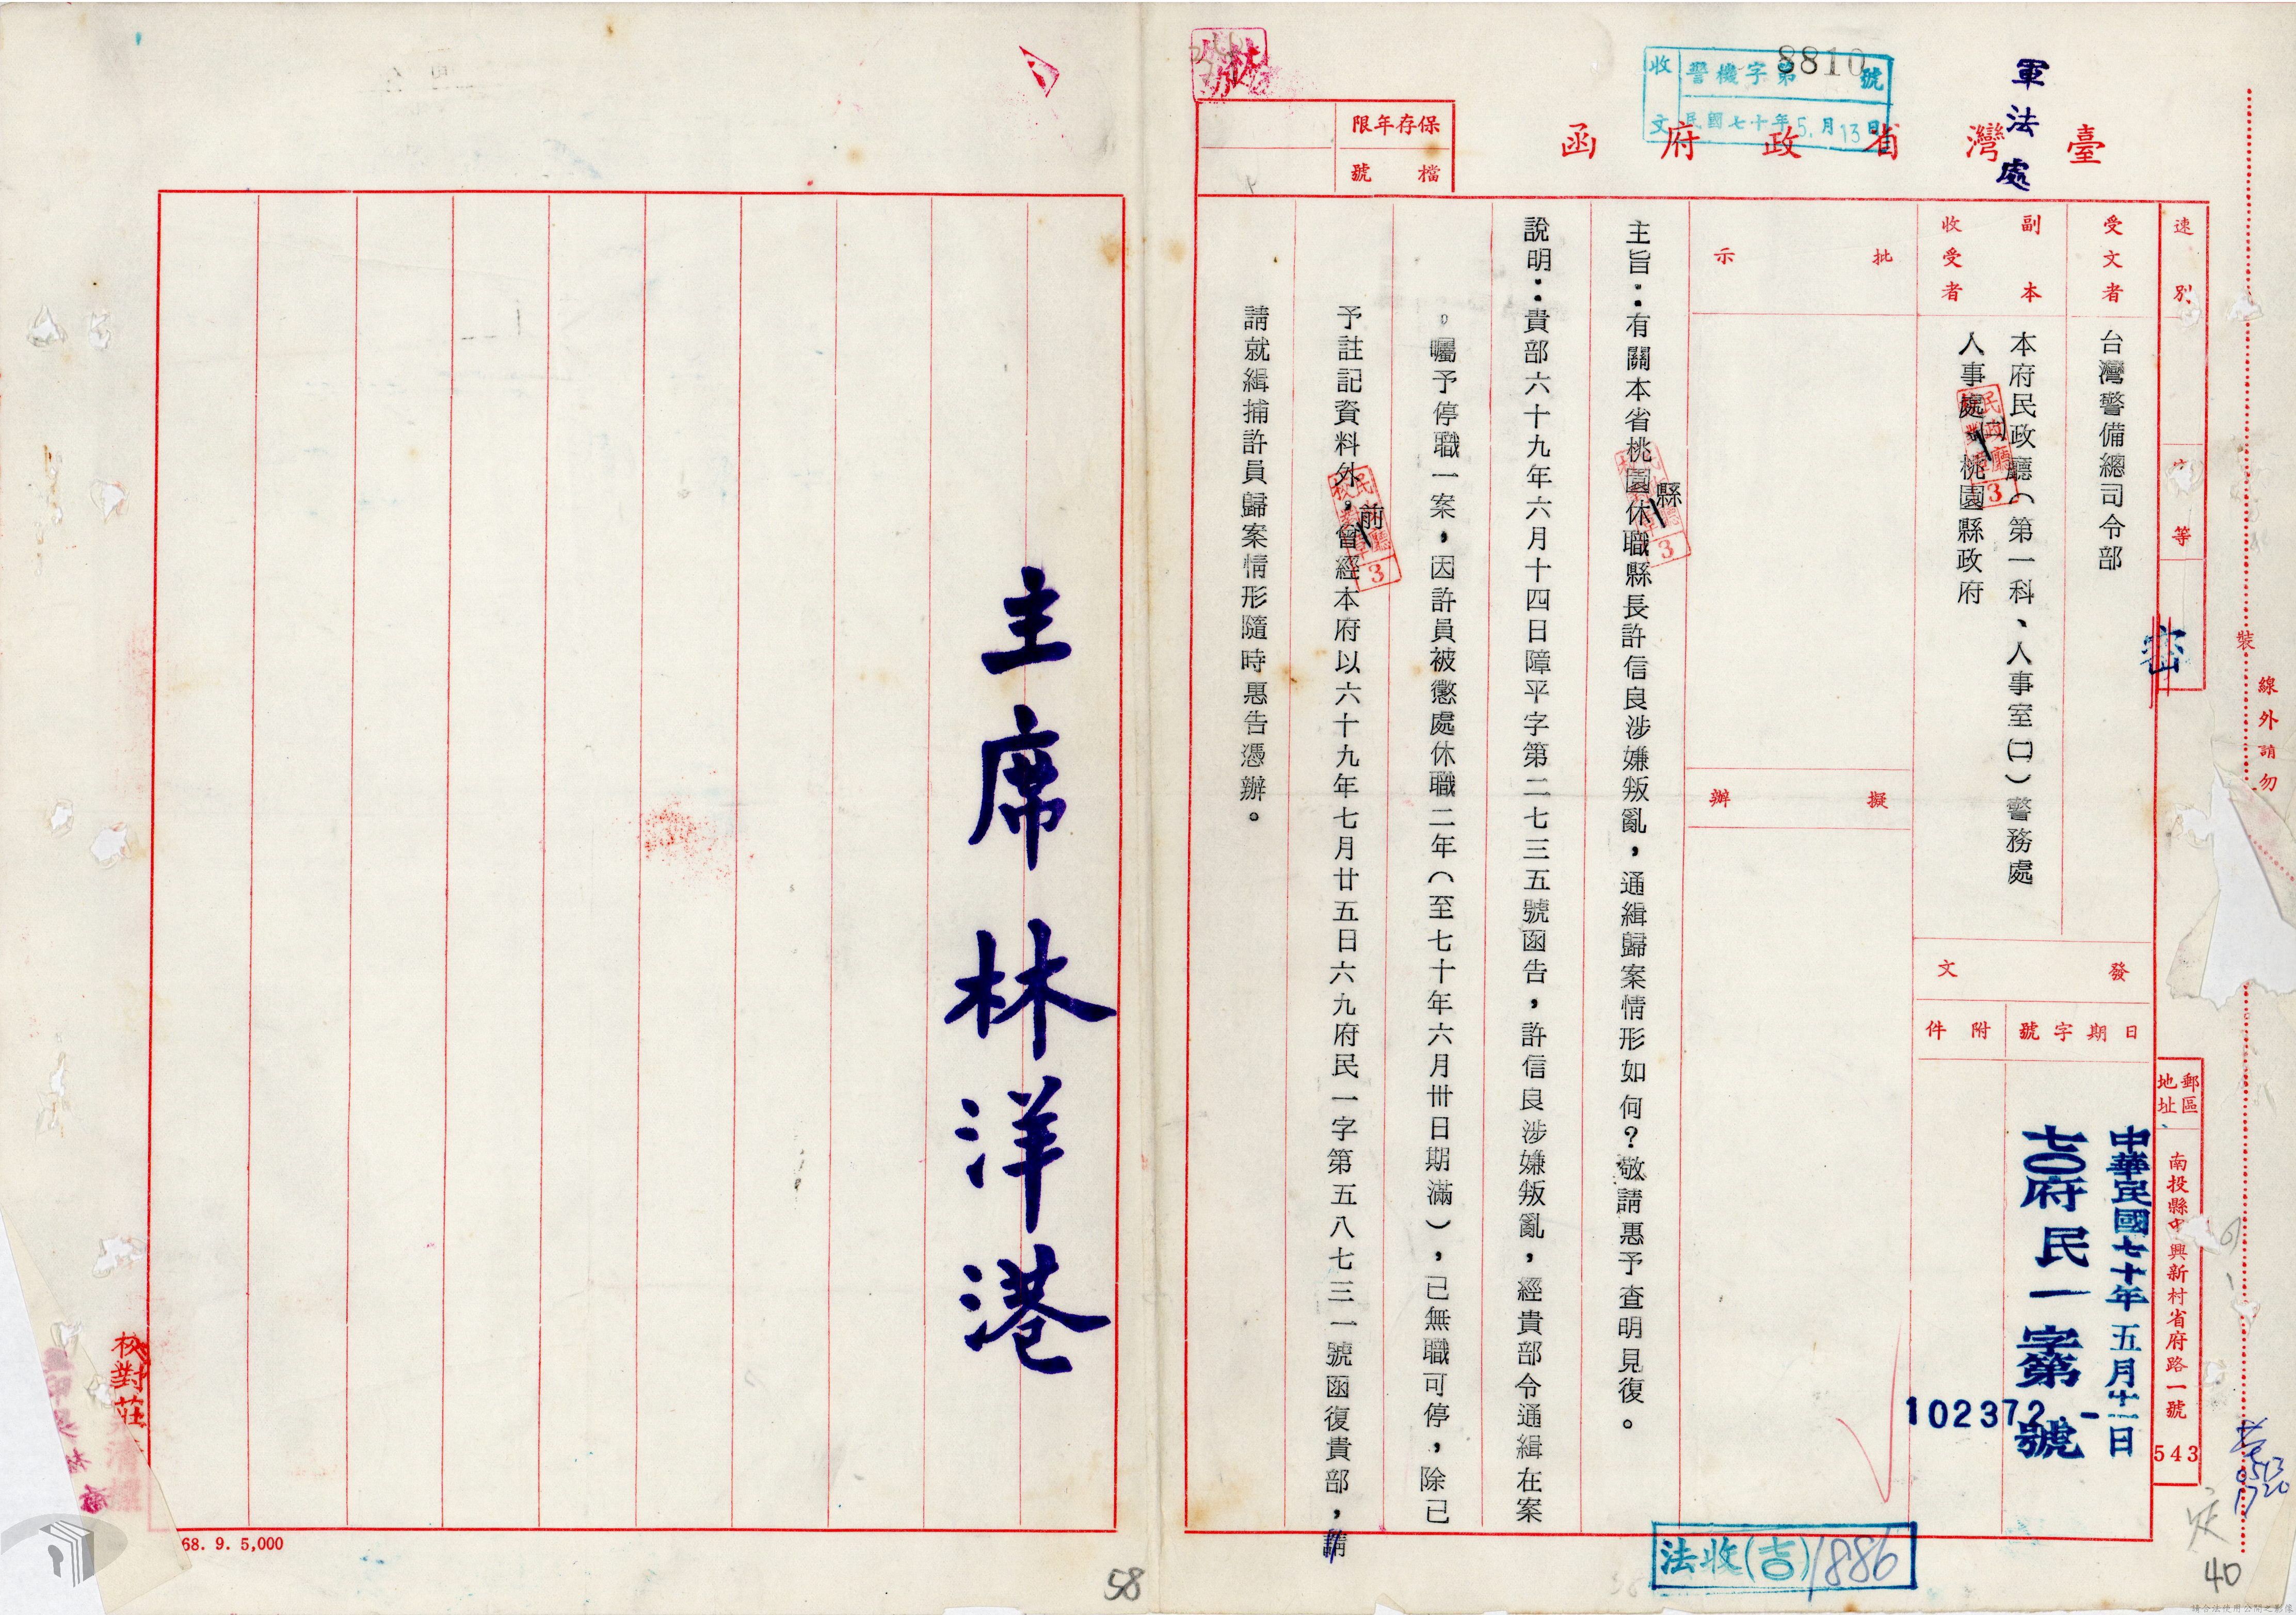 軍法處
臺灣省政府函
收文
警機字第8810號
民國七十年5.月13日
保存年限
檔號
速別
密等
密
受文者
台灣警備總司令部
副本
收受者
本府民政廳(第一科、人事室㈡)警務處
人事處㈠桃園縣政府
發文
日期字號
附件
中華民國七十年五月十二日
七〇府民一字第102372號
郵區
地址
南投縣中興新村省府路一號
543
批示
擬辦
主旨:有關本省桃園縣休職縣長許信良涉嫌叛亂,通緝歸案情形如何?敬請惠予查明見復。
說明:貴部六十九年六月十四日障平字第二七三五號函告,許信良涉嫌叛亂,經貴部令通緝在案
。囑予停職一案,因許員被懲處休職二年(至七十年六月卅日期滿),已無職可停,除已
予註記資料外,前曾經本府以六十九年七月廿五日六九府民一字第五八七三一號函復貴部,請
請就緝捕許員歸案情形隨時惠告憑辦。
主席林洋港
裝
線外請勿
法收(吉)1886
校對莊
68. 9. 5,000
58
40